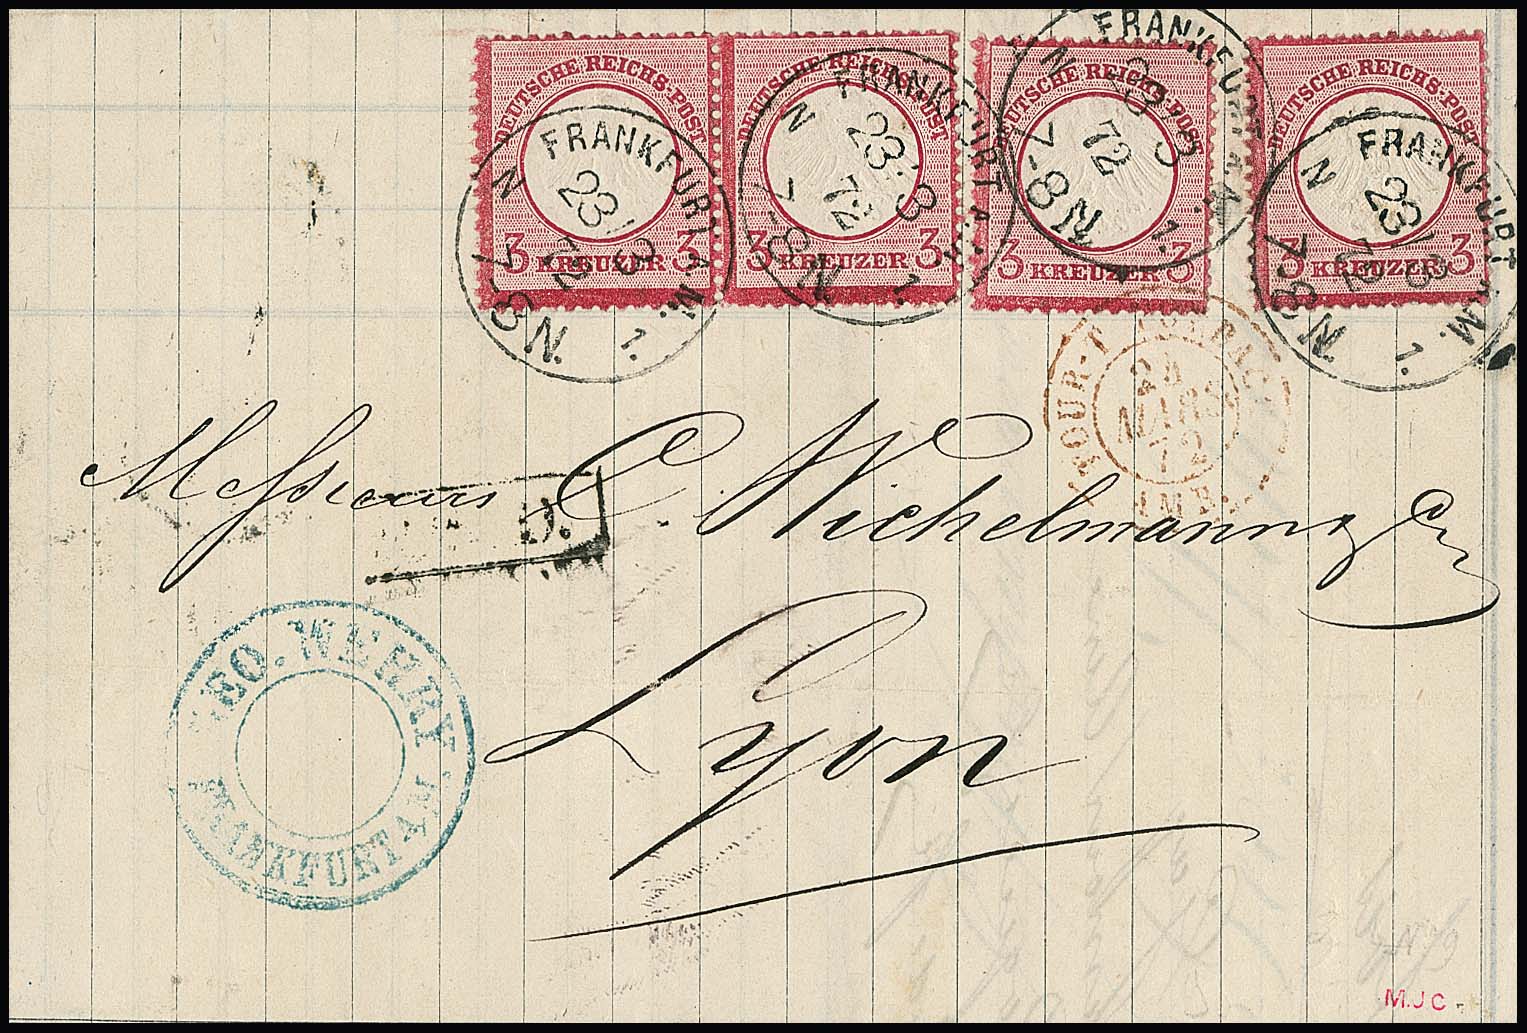 DEUTSCHE REICHS-POST
3 KREUZER 3
DEUTSCHE REICHS-POST
3 KREUZER 3
DEUTSCHE REICHS-POST
3 KREUZER 3
DEUTSCHE REICHS-POST
3 KREUZER 3
FRANKFURT A.M. 1.
23 3
72
N 7-8 N.
FRANKFURT A.M. 1.
23 3
72
N 7-8 N.
FRANKFURT A.M. 1.
23 3
72
N 7-8 N.
FRANKFURT A.M. 1.
23 3
72
N 7-8 N.
TOUR-T
MARS
72
AMB.
Messieurs C. Wichelmann &
D.
Lyon
GEO. WERRY
FRANKFURT A/M
M.J C